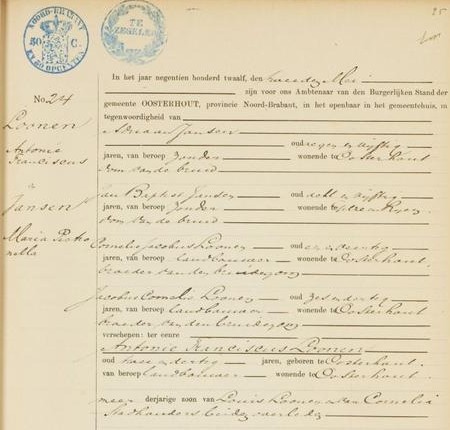 NOORD-BRABANT
50 C.
EN 38 OPCENTEN
TE
ZEGELEN
25
In het jaar negentien honderd twaalf, den tweeden Mei
zijn voor ons Ambtenaar van den Burgerlijken Stand der
No. 24
gemeente OOSTERHOUT, provincie Noord-Brabant, in het openbaar in het gemeentehuis, in
tegenwoordigheid van
Loonen
Adriaan Jansen
Antonie
Franciscus
oud negen en vijftig
jaren, van beroep zonder wonende te Oosterhout
oom van de bruid
en
Jansen
Jan Baptist Jansen oud acht en vijftig
jaren, van beroep zonder wonende te
oom van de bruid
Maria Petro
nella
Cornelis Jacobus Loonen oud en dertig
jaren, van beroep landbouwer wonende te Oosterhout
broeder van den bruidegom
Jacobus Cornelis Loonen oud zes en dertig
jaren, van beroep landbouwer wonende te Oosterhout
broeder van den bruidegom
verschenen: ter eenre
Antonie Franciscus Loonen
oud twee en dertig jaren, geboren te Oosterhout
van beroep landbouwer wonende te Oosterhout
meerderjarige zoon van Louis Loonen en van Cornelia
Stadhouders beiden overleden